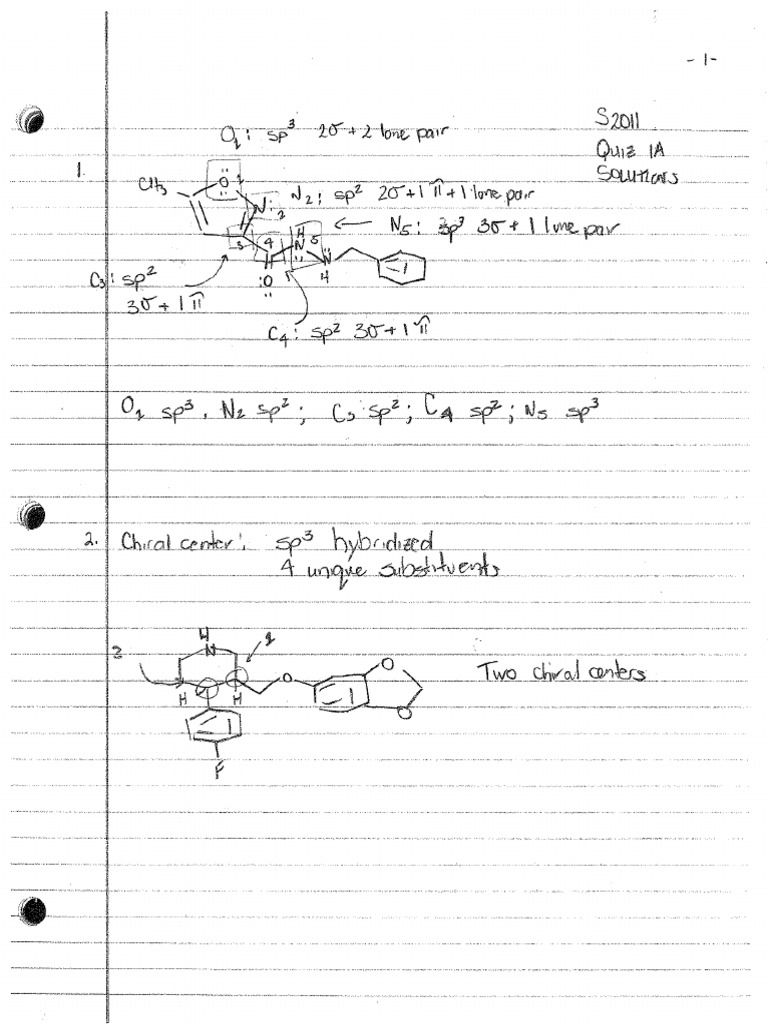 -1-
S2011
Quiz 1A
Solutions
O1: sp3 2σ + 2 lone pair
1.
CH3
O 1
N: 2
N2: sp2 2σ + 1 π + 1 lone pair
N5: sp3 3σ + 1 lone pair
3 4 H N 5 N 4
:O
C3: sp2
3σ + 1 π
C4: sp2 3σ + 1 π
O1 sp3, N2 sp2; C3 sp2; C4 sp2; N5 sp3
2. Chiral center: sp3 hybridized
4 unique substituents
H
N
2
O
O
Two chiral centers
H H
O
F